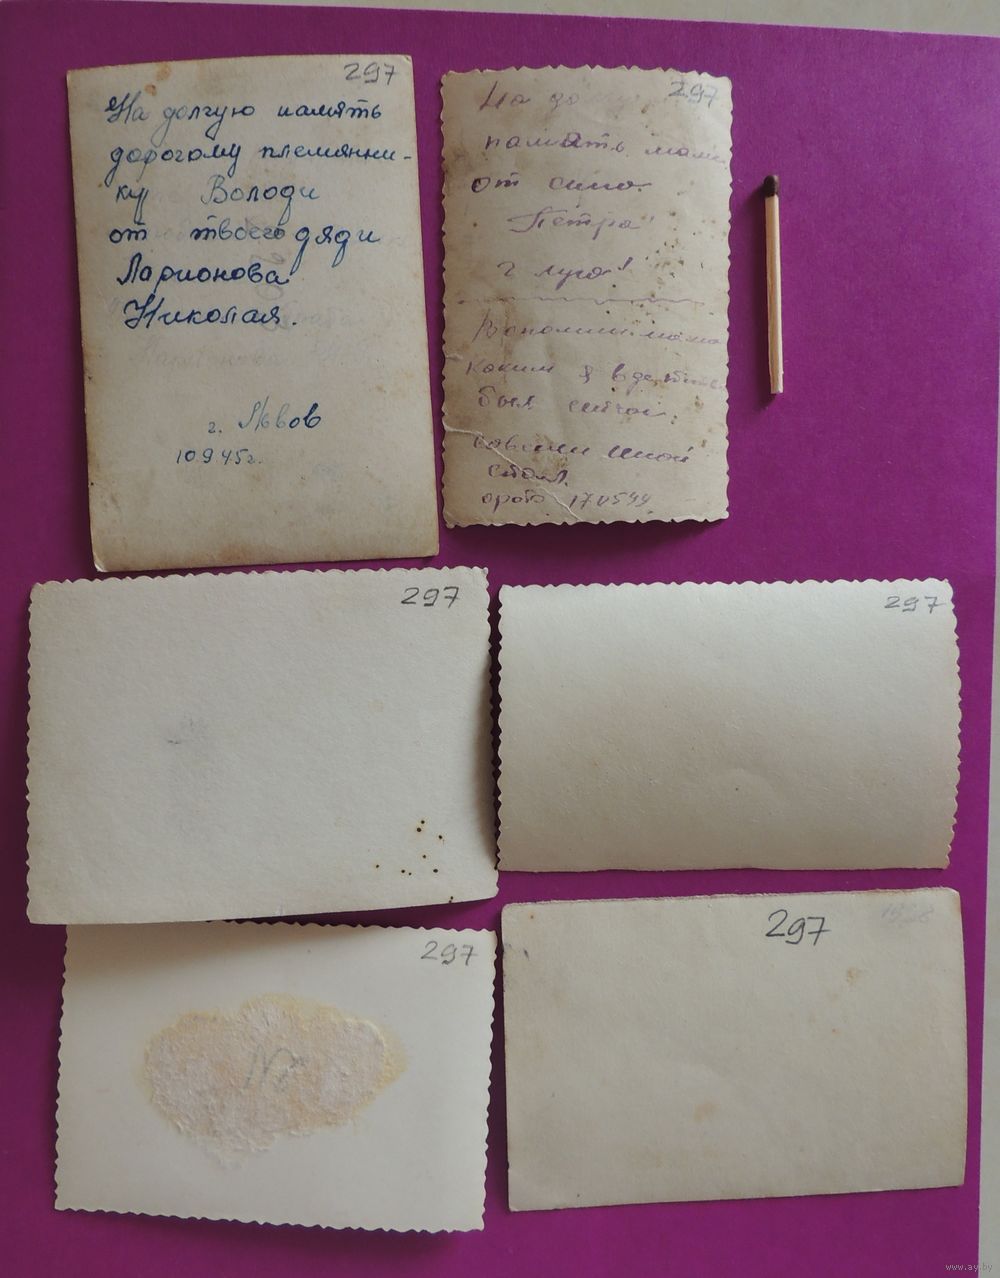 297
На долгую память
дорогому племянни-
ку Володи
от твоего дяди
Ларионова
Николая.
г. Львов
10.9.45г.
297
На
память маме
от сына
Петра
Вспомни мама
каким я в детстве
был
стал.
фото
297
297
297
297
www.ay.by